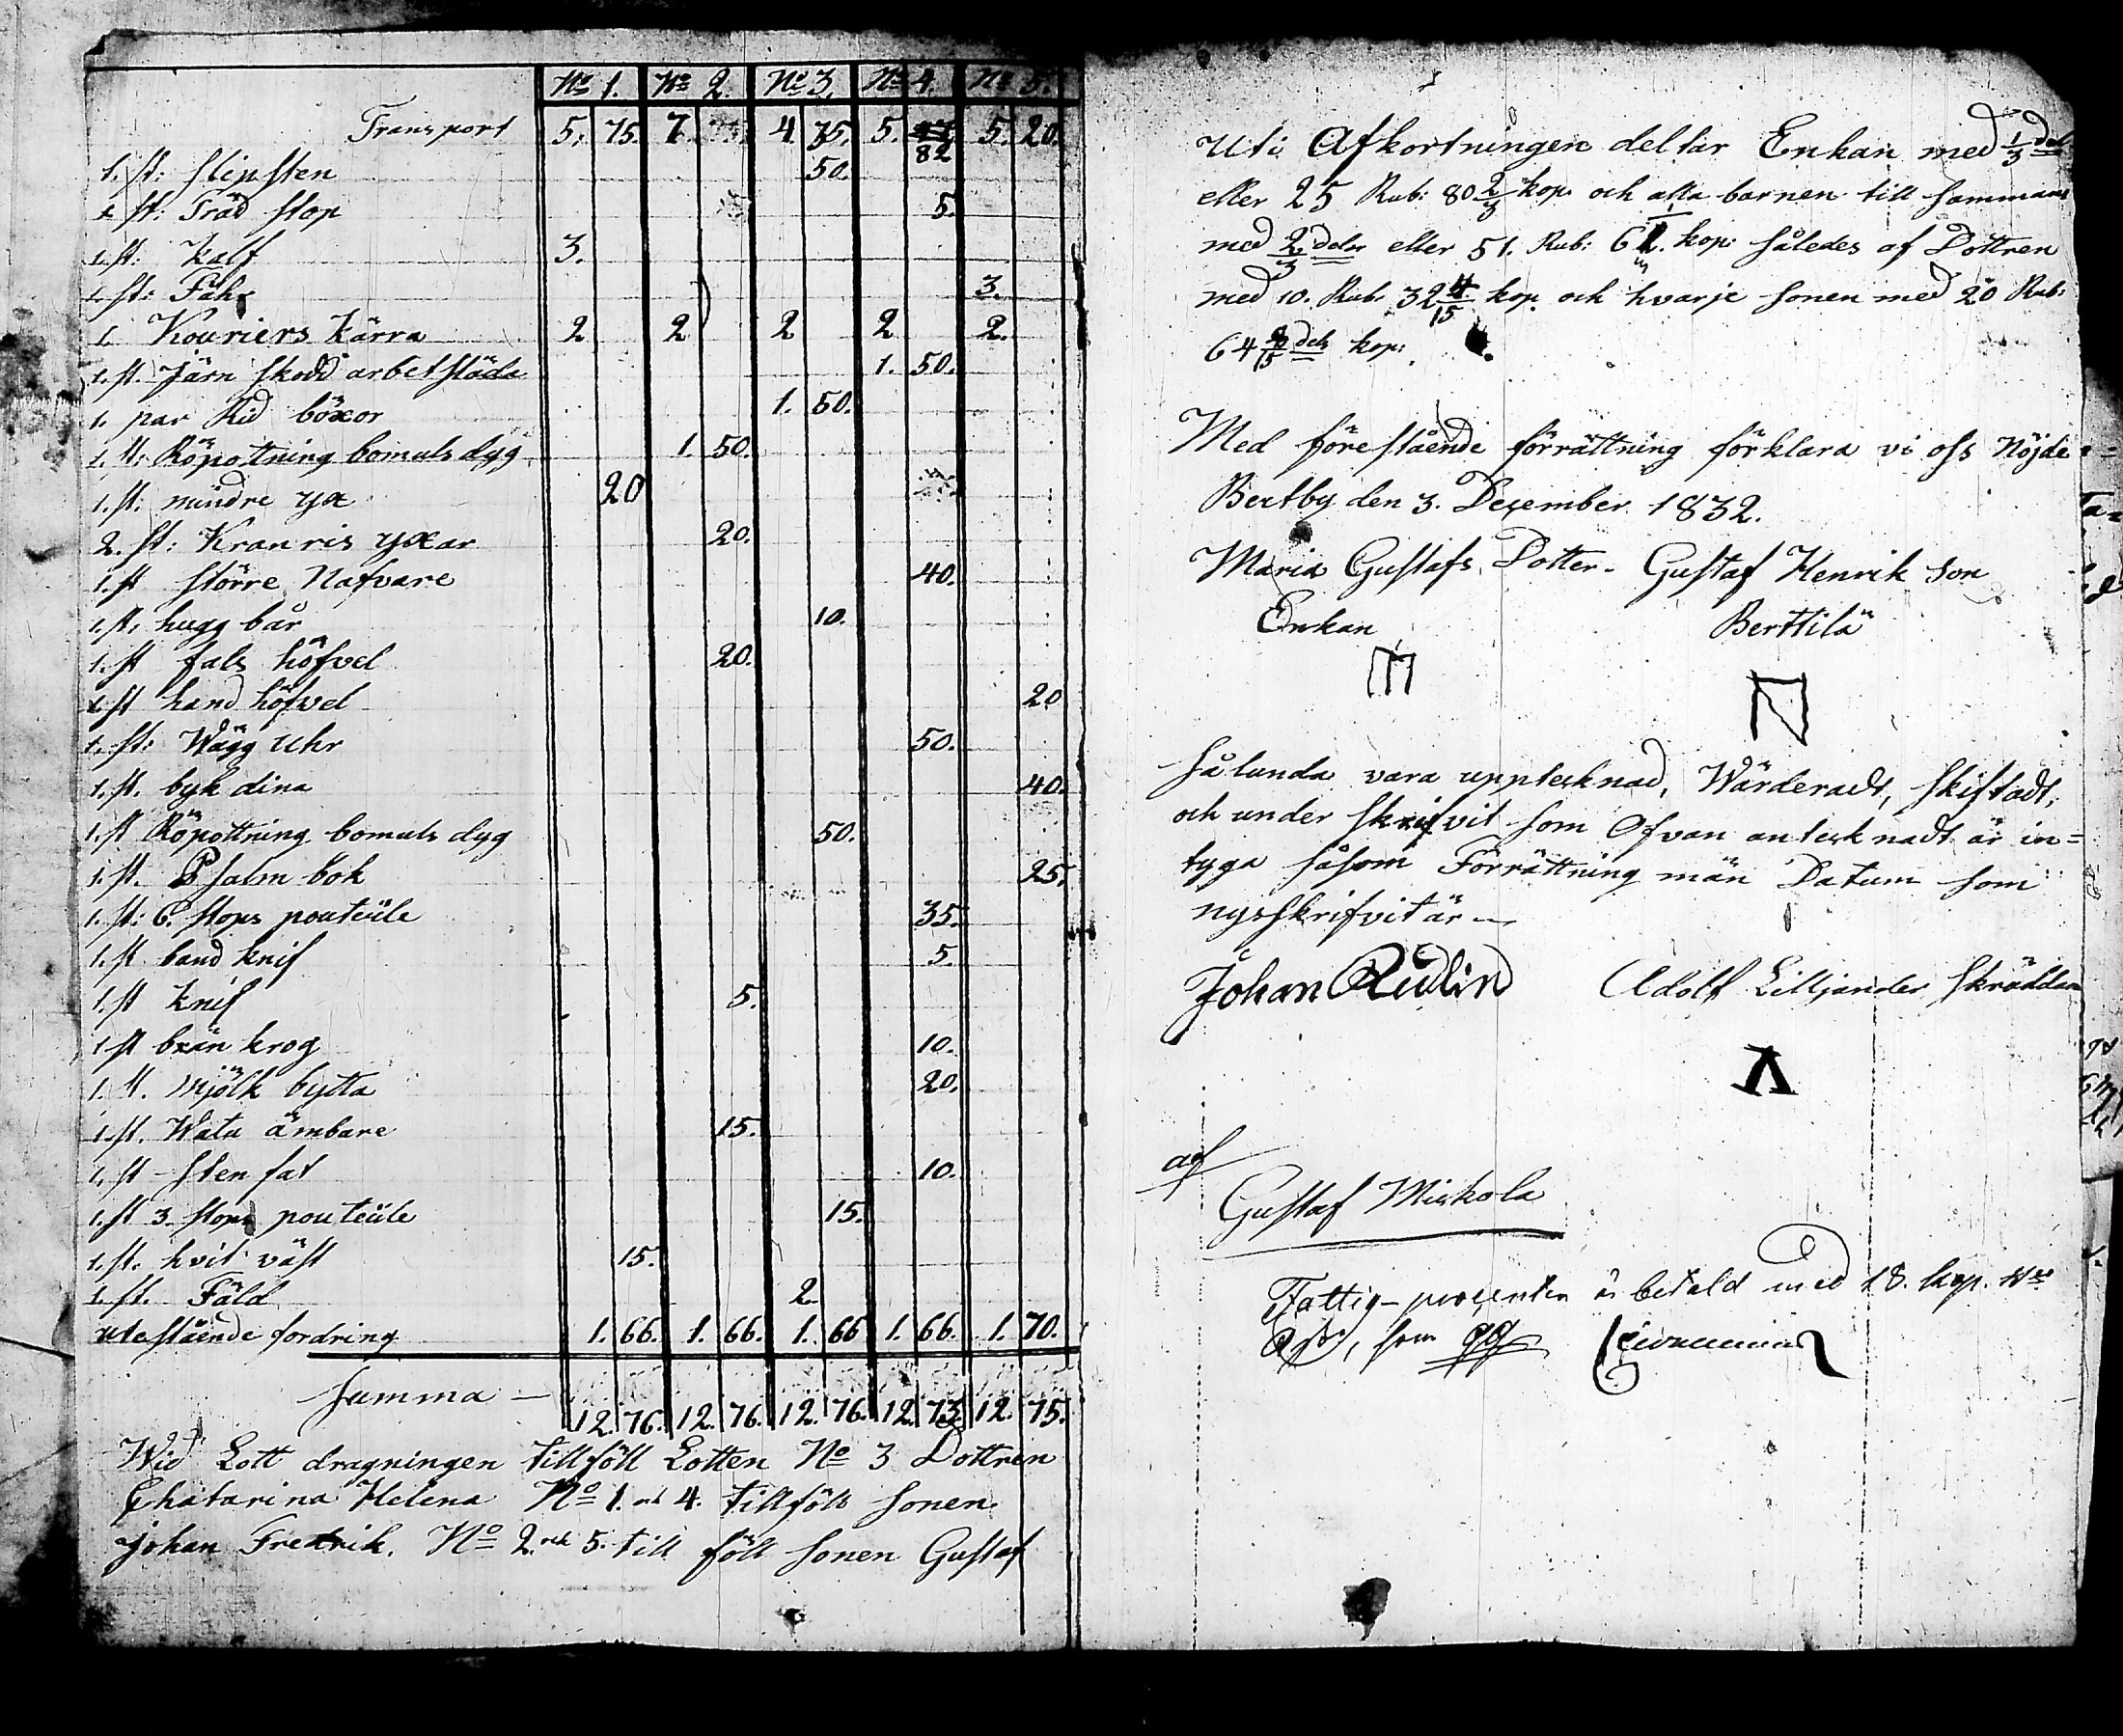 No 1. No 2. No 3. No 4. No 5.
Transport 5. 75. 7. 75. 4. 75. 5. 82 5. 20.
1. st: slipsten 50.
1 st: Träd stop 5.
1. st: Kalf 3.
1. st: Fåhr 3.
1. Kouriers kärra 2 2 2 2 2.
1. st. Järn skodd arbetsläda 1. 50.
1. par Rid böxor 1. 50.
1. st: Röpottning bomuls dyg 1. 50.
1. st: mindre yxa 20
2. st: Kranris yxar 20.
1. st större Nafvare 40.
1. st. hugg bår 10.
1. st fals höfvel 20.
1. st hand höfvel 20
1. st: Wägg Uhr 50.
1. st. byk dina 40.
1. st Röpottning bomuls dyg 50.
1. st. Psalm bok 25.
1. st: 6. stops pouteüle 35.
1. st band knif 5.
1. st Knif 5.
1 st brän krog 10.
1. st. Mjölk bytta 20.
1. st. Watu ämbare 15.
1. st sten fat 10.
1. st 3. stops pouteüle 15.
1. st. hvit väst 15.
1. st. Fäld 2.
utestående fordring 1. 66. 1. 66. 1. 66 1. 66. 1. 70.
Summa — 12. 76. 12. 76. 12. 76. 12. 73. 12. 75.
Wid Lott dragningen tillföll Lotten No 3 Dottren
Chatarina Helena No 1. och 4. tillföll sonen
Johan Fredrik. No 2. och 5. till föll sonen Gustaf
Uti Afkortningen deltar Enkan med 1/3 del
eller 25 Rub: 80 2/3 kop. och alla barnen till sammans
med 2/3 delar eller 51. Rub: 61 1/3 kop: således af Dottren
med 10. Rub. 32 4/15 kop. och hvarje sonen med 20 Rub:
64 8/15 dels kop:
Med förestående förrättning förklara vi oss Nöjde
Bertby den 3. December 1832.
Maria Gustafs Dotter. Gustaf Henrik son
Enkan Berttilä
Sålunda vara upptecknad, Wärderadt, skiftadt,
och under skrifvit som Ofvan antecknadt är in=
tyga såsom Förrättning män Datum som
nysskrifvit är —
Johan Rudin Adolf Lilljander Skräddare
af
Gustaf Miskola
Fattig-procenten är betald med 18. kop.
som